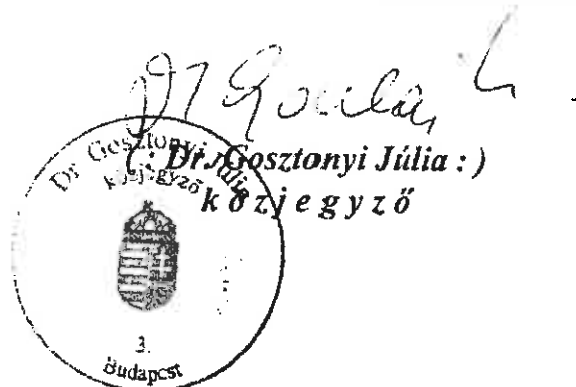 (: Dr. Gosztonyi Júlia :)
közjegyző
Dr Gosztonyi Júlia
közjegyző
3.
Budapest